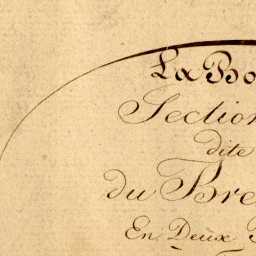 La Bo
Section
dite
du Bre
En Deux